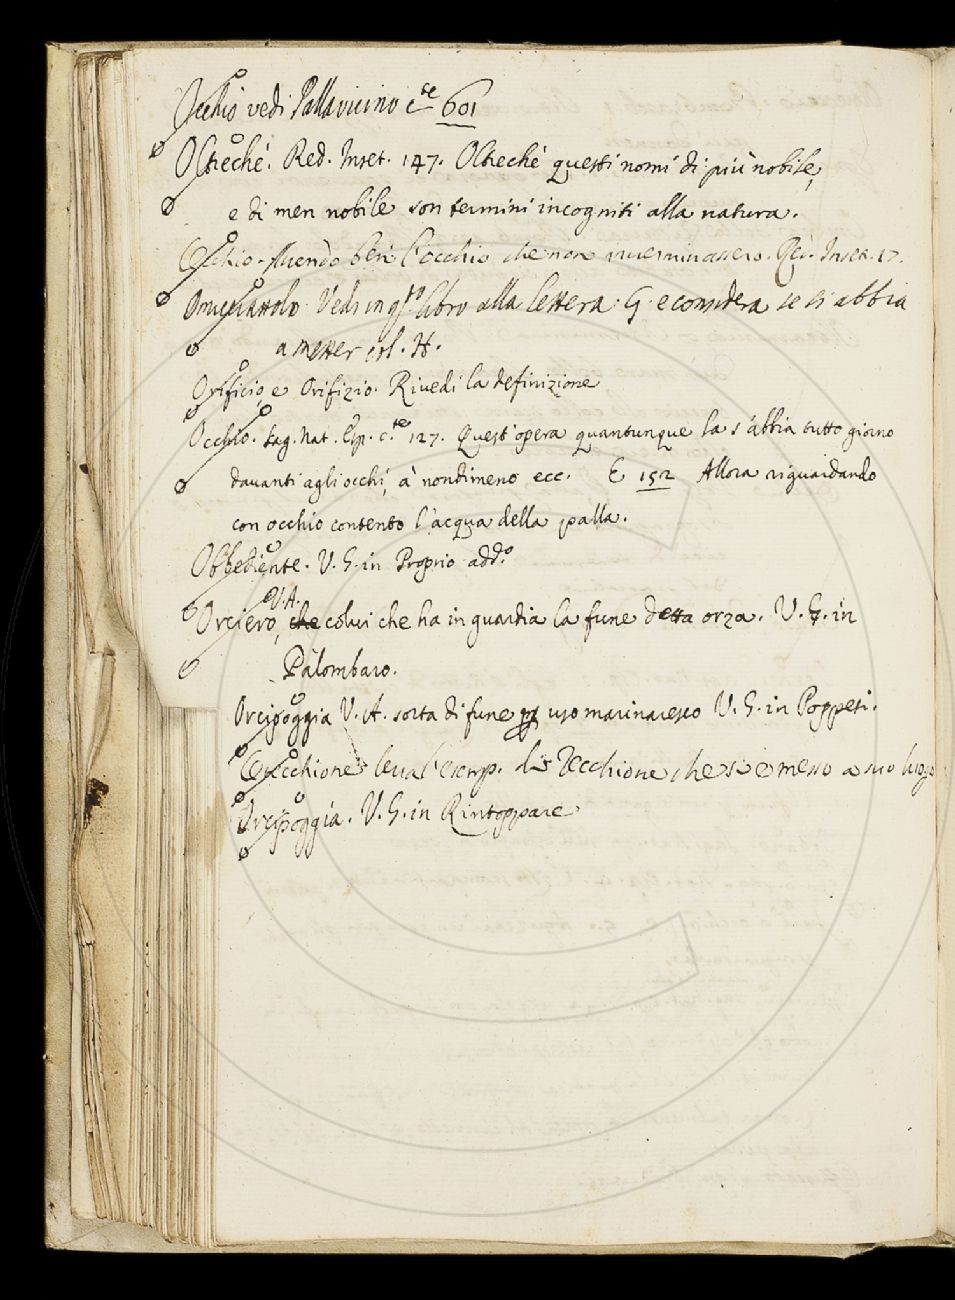 Occhio vedi Pallavicino c.te 601
Oltreché. Red. Inset. 147. Oltreché questi nomi di più nobile,
e di men nobile son termini incogniti alla natura.
Occhio. Avendo ben l'occhio che non inverminassero. Red. Inset. 17.
Vedi in qsto libro alla lettera G. e considera se si abbia
a metter col. H.
Orificio, e Orifizio. Rivedi la definizione
Occhio. Sag. Nat. Esp. c.te 127. Quest'opera quantunque la s'abbia tutto giorno
davanti agli occhi, à nondimeno ecc. E 152 Allora riguardando
con occhio contento l'acqua della palla.
Obbediente. V. G. in Proprio add.o
V.A.
Orciero, che colui che ha in guardia la fune detta orza. V. G. in
Palombaro.
Orcipoggia V. A. sorta di fune uso marinaresco V. G. in Poppesi.
Orecchione leva l'esemp. che si è messo a suo luogo
Orcipoggia. V. G. in Rintoppare